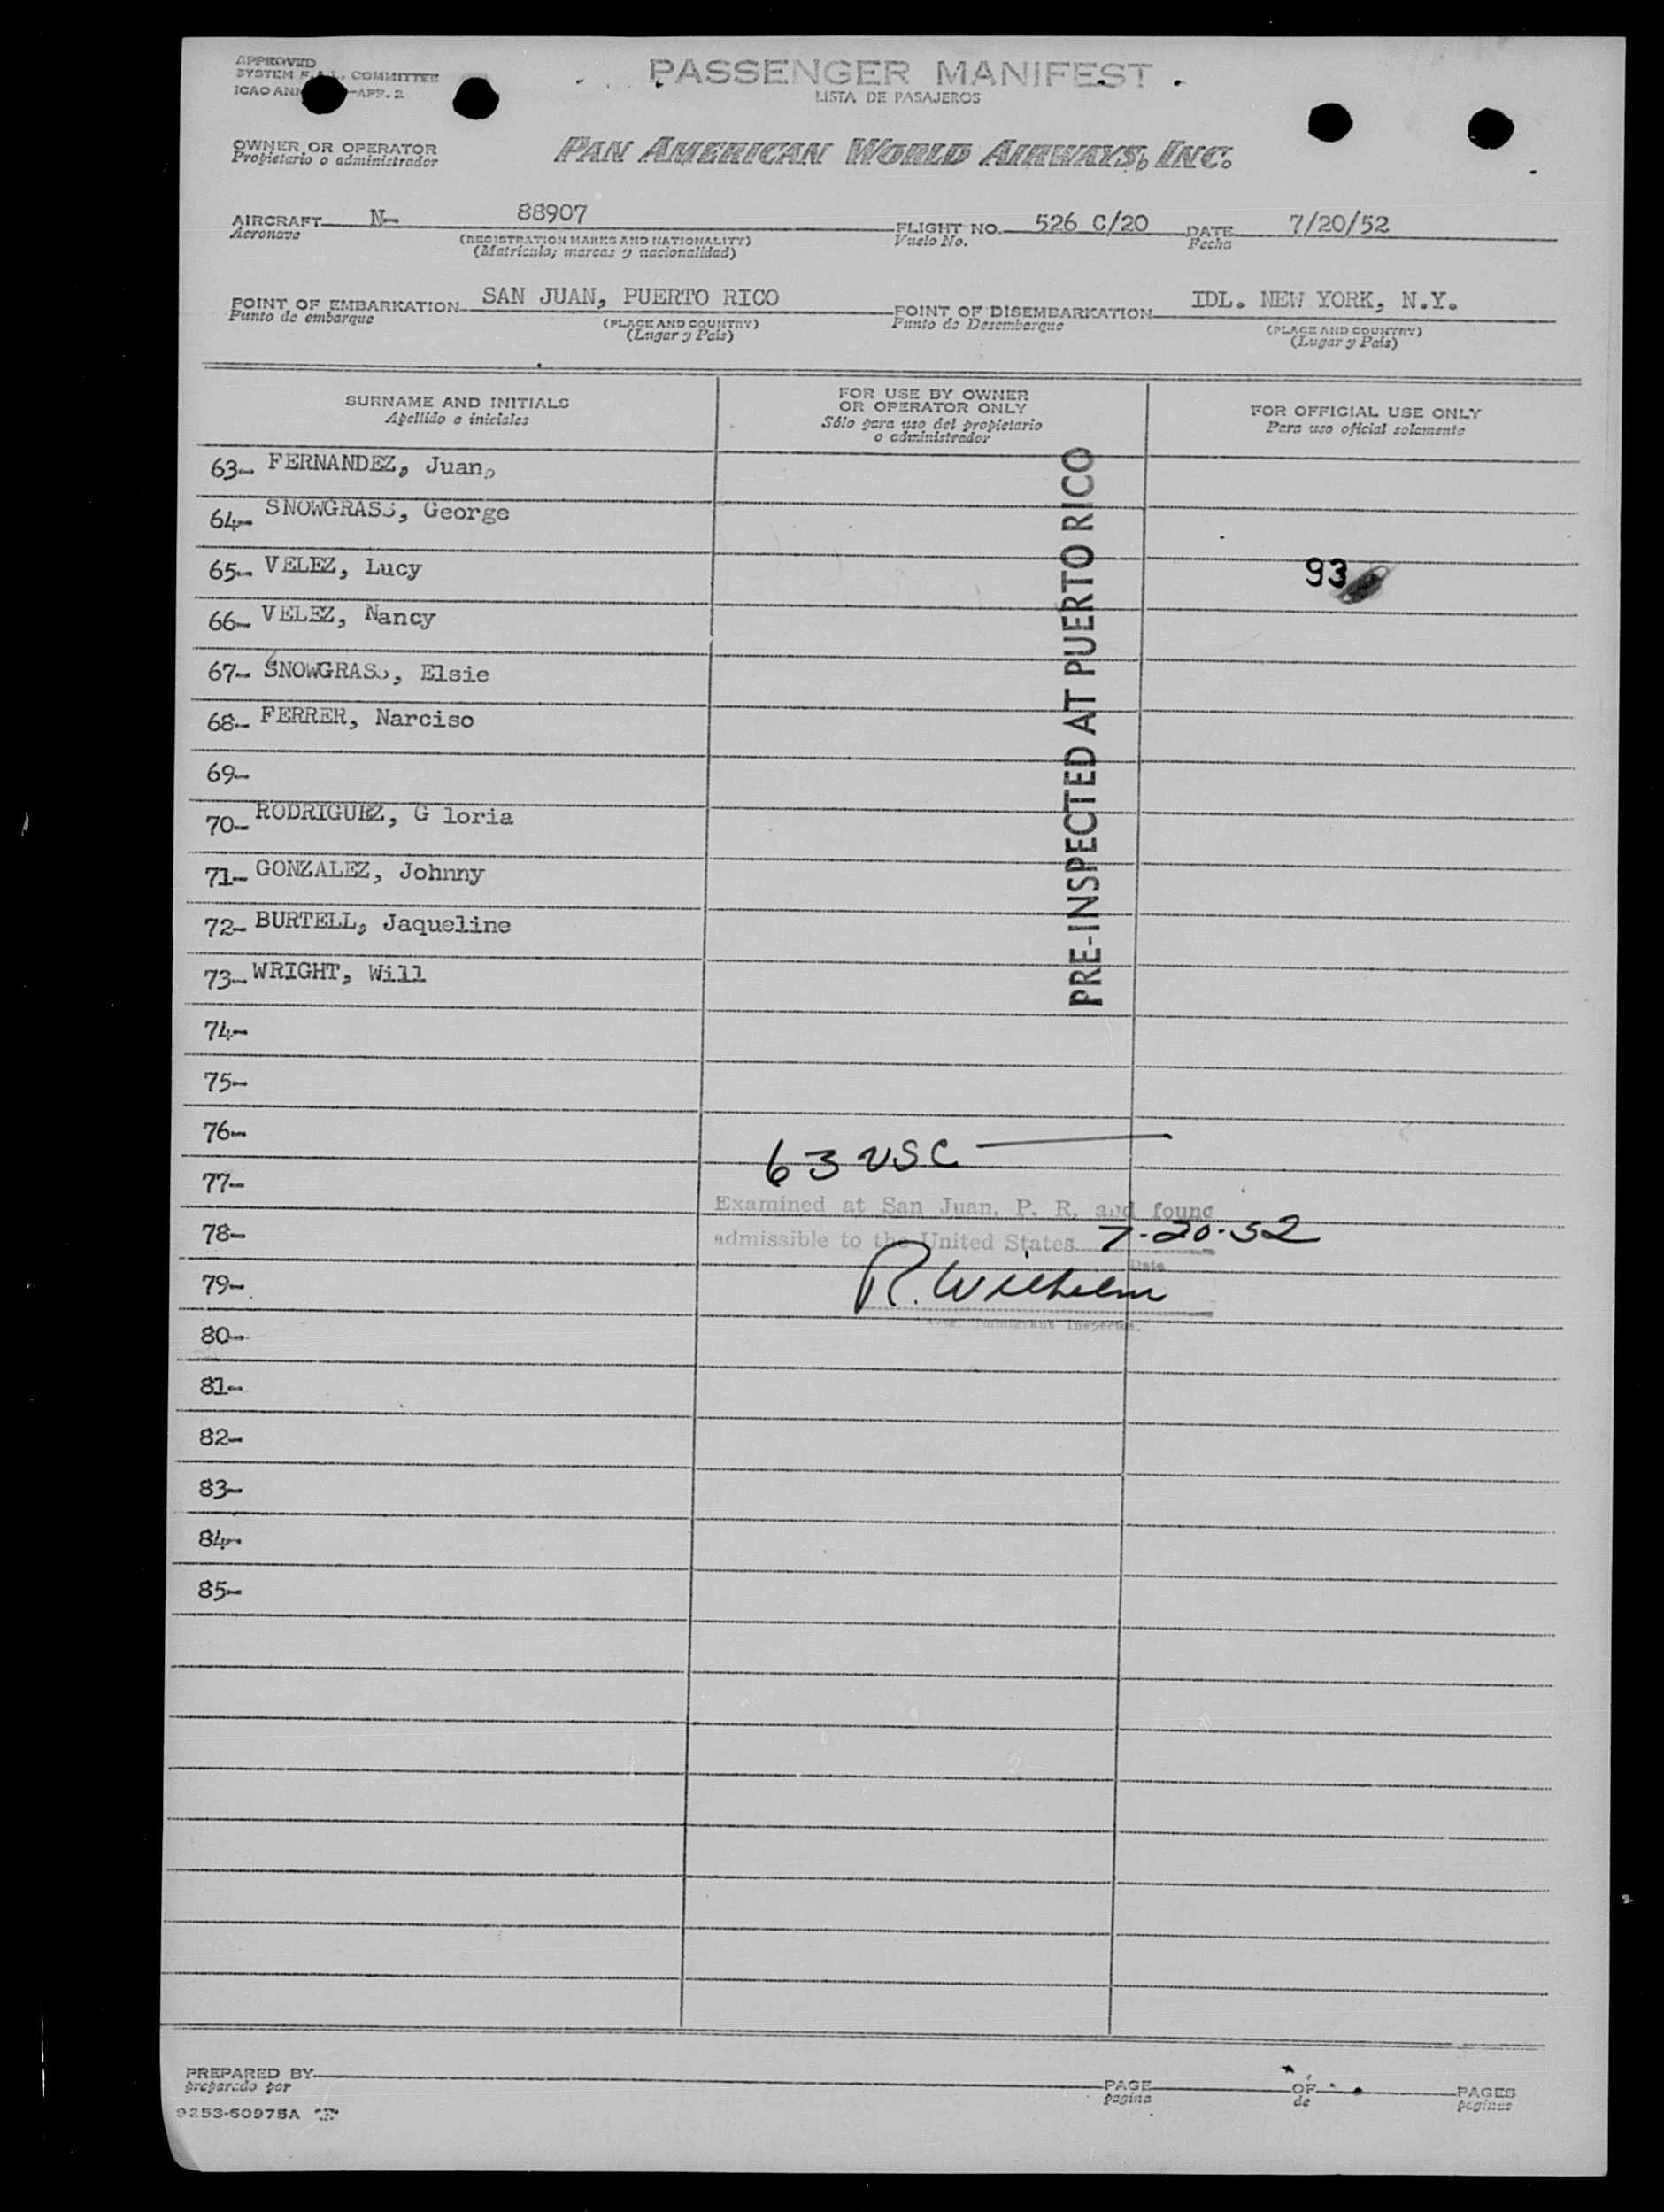 APPROVED
SYSTEM F.A.L. COMMITTEE
ICAO ANN -APP. 2
PASSENGER MANIFEST
LISTA DE PASAJEROS
OWNER OR OPERATOR
Propietario o administrador
PAN AMERICAN WORLD AIRWAYS, INC.
AIRCRAFT N- 88907
Aeronave
(REGISTRATION MARKS AND NATIONALITY)
(Matricula; marcas y nacionalidad)
FLIGHT NO. 526 C/20
Vuelo No.
DATE 7/20/52
Fecha
POINT OF EMBARKATION SAN JUAN, PUERTO RICO
Punto de embarque
(PLACE AND COUNTRY)
(Lugar y País)
POINT OF DISEMBARKATION IDL. NEW YORK, N.Y.
Punto de Desembarque
(PLACE AND COUNTRY)
(Lugar y País)
SURNAME AND INITIALS
Apellido e iniciales
FOR USE BY OWNER
OR OPERATOR ONLY
Sólo para uso del propietario
o administrador
FOR OFFICIAL USE ONLY
Para uso oficial solamente
63- FERNANDEZ, Juan,
64- SNOWGRASS, George
65- VELEZ, Lucy
93
66- VELEZ, Nancy
67- SNOWGRASS, Elsie
68- FERRER, Narciso
69-
70- RODRIGUEZ, G loria
71- GONZALEZ, Johnny
72- BURTELL, Jaqueline
73- WRIGHT, Will
PRE-INSPECTED AT PUERTO RICO
74-
75-
76-
63 USC
77-
Examined at San Juan, P. R. and found
78-
admissible to the United States 7-20-52
Date
79-
R. Wilhelm
Immigrant Inspector.
80-
81-
82-
83-
84-
85-
PREPARED BY
preparado por
PAGE
pagina
OF
de
PAGES
paginas
9253-60975A